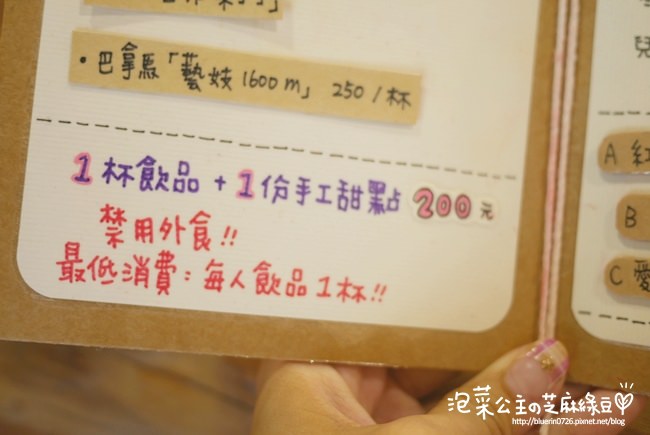 ・巴拿馬「藝妓1600m」 250/杯
1杯飲品+1份手工甜點 200元
禁用外食!!
最低消費:每人飲品1杯!!
A 紅
B
C 愛
泡菜公主の芝麻綠豆
http://bluerin0726.pixnet.net/blog